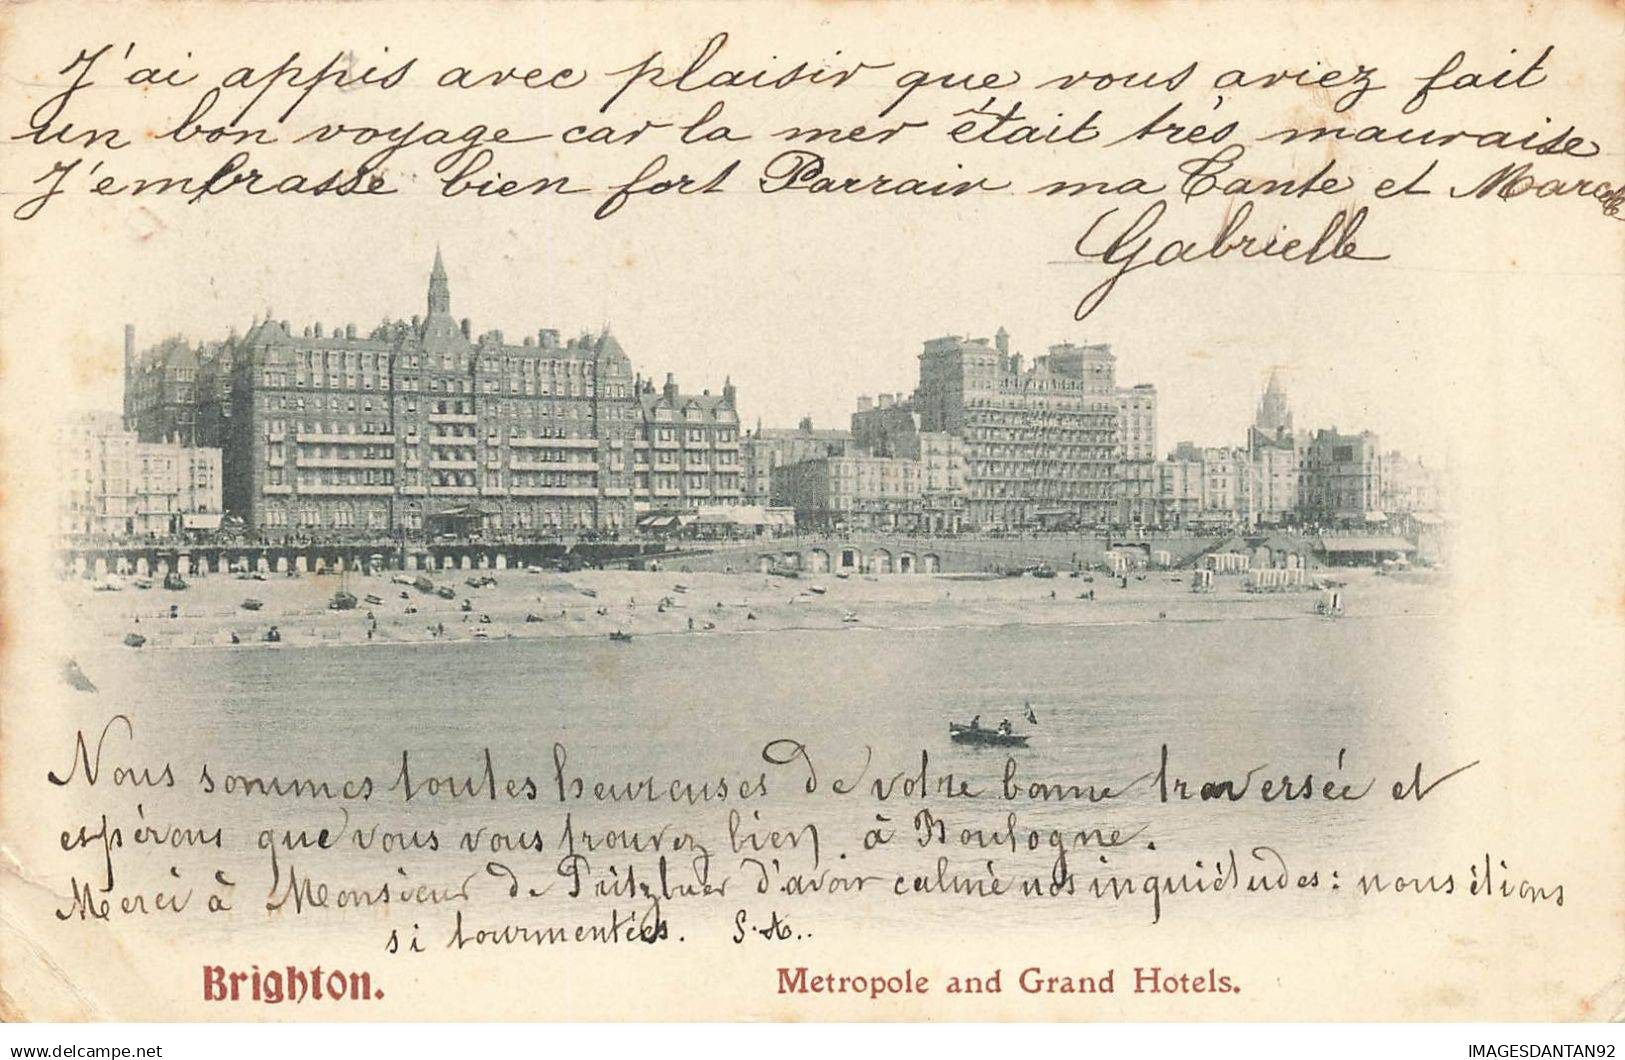 J'ai appis avec plaisir que vous aviez fait
un bon voyage car la mer était très mauvaise
J'embrasse bien fort Parrain ma Tante et Marcelle
Gabrielle
Nous sommes toutes heureuses de votre bonne traversée et
espérons que vous vous trouvez bien à Boulogne.
Merci à Monsieur de d'avoir calmé nos inquiétudes: nous étions
si tourmentées. S.A..
Brighton. Metropole and Grand Hotels.
https://www.delcampe.net IMAGESDANTAN92